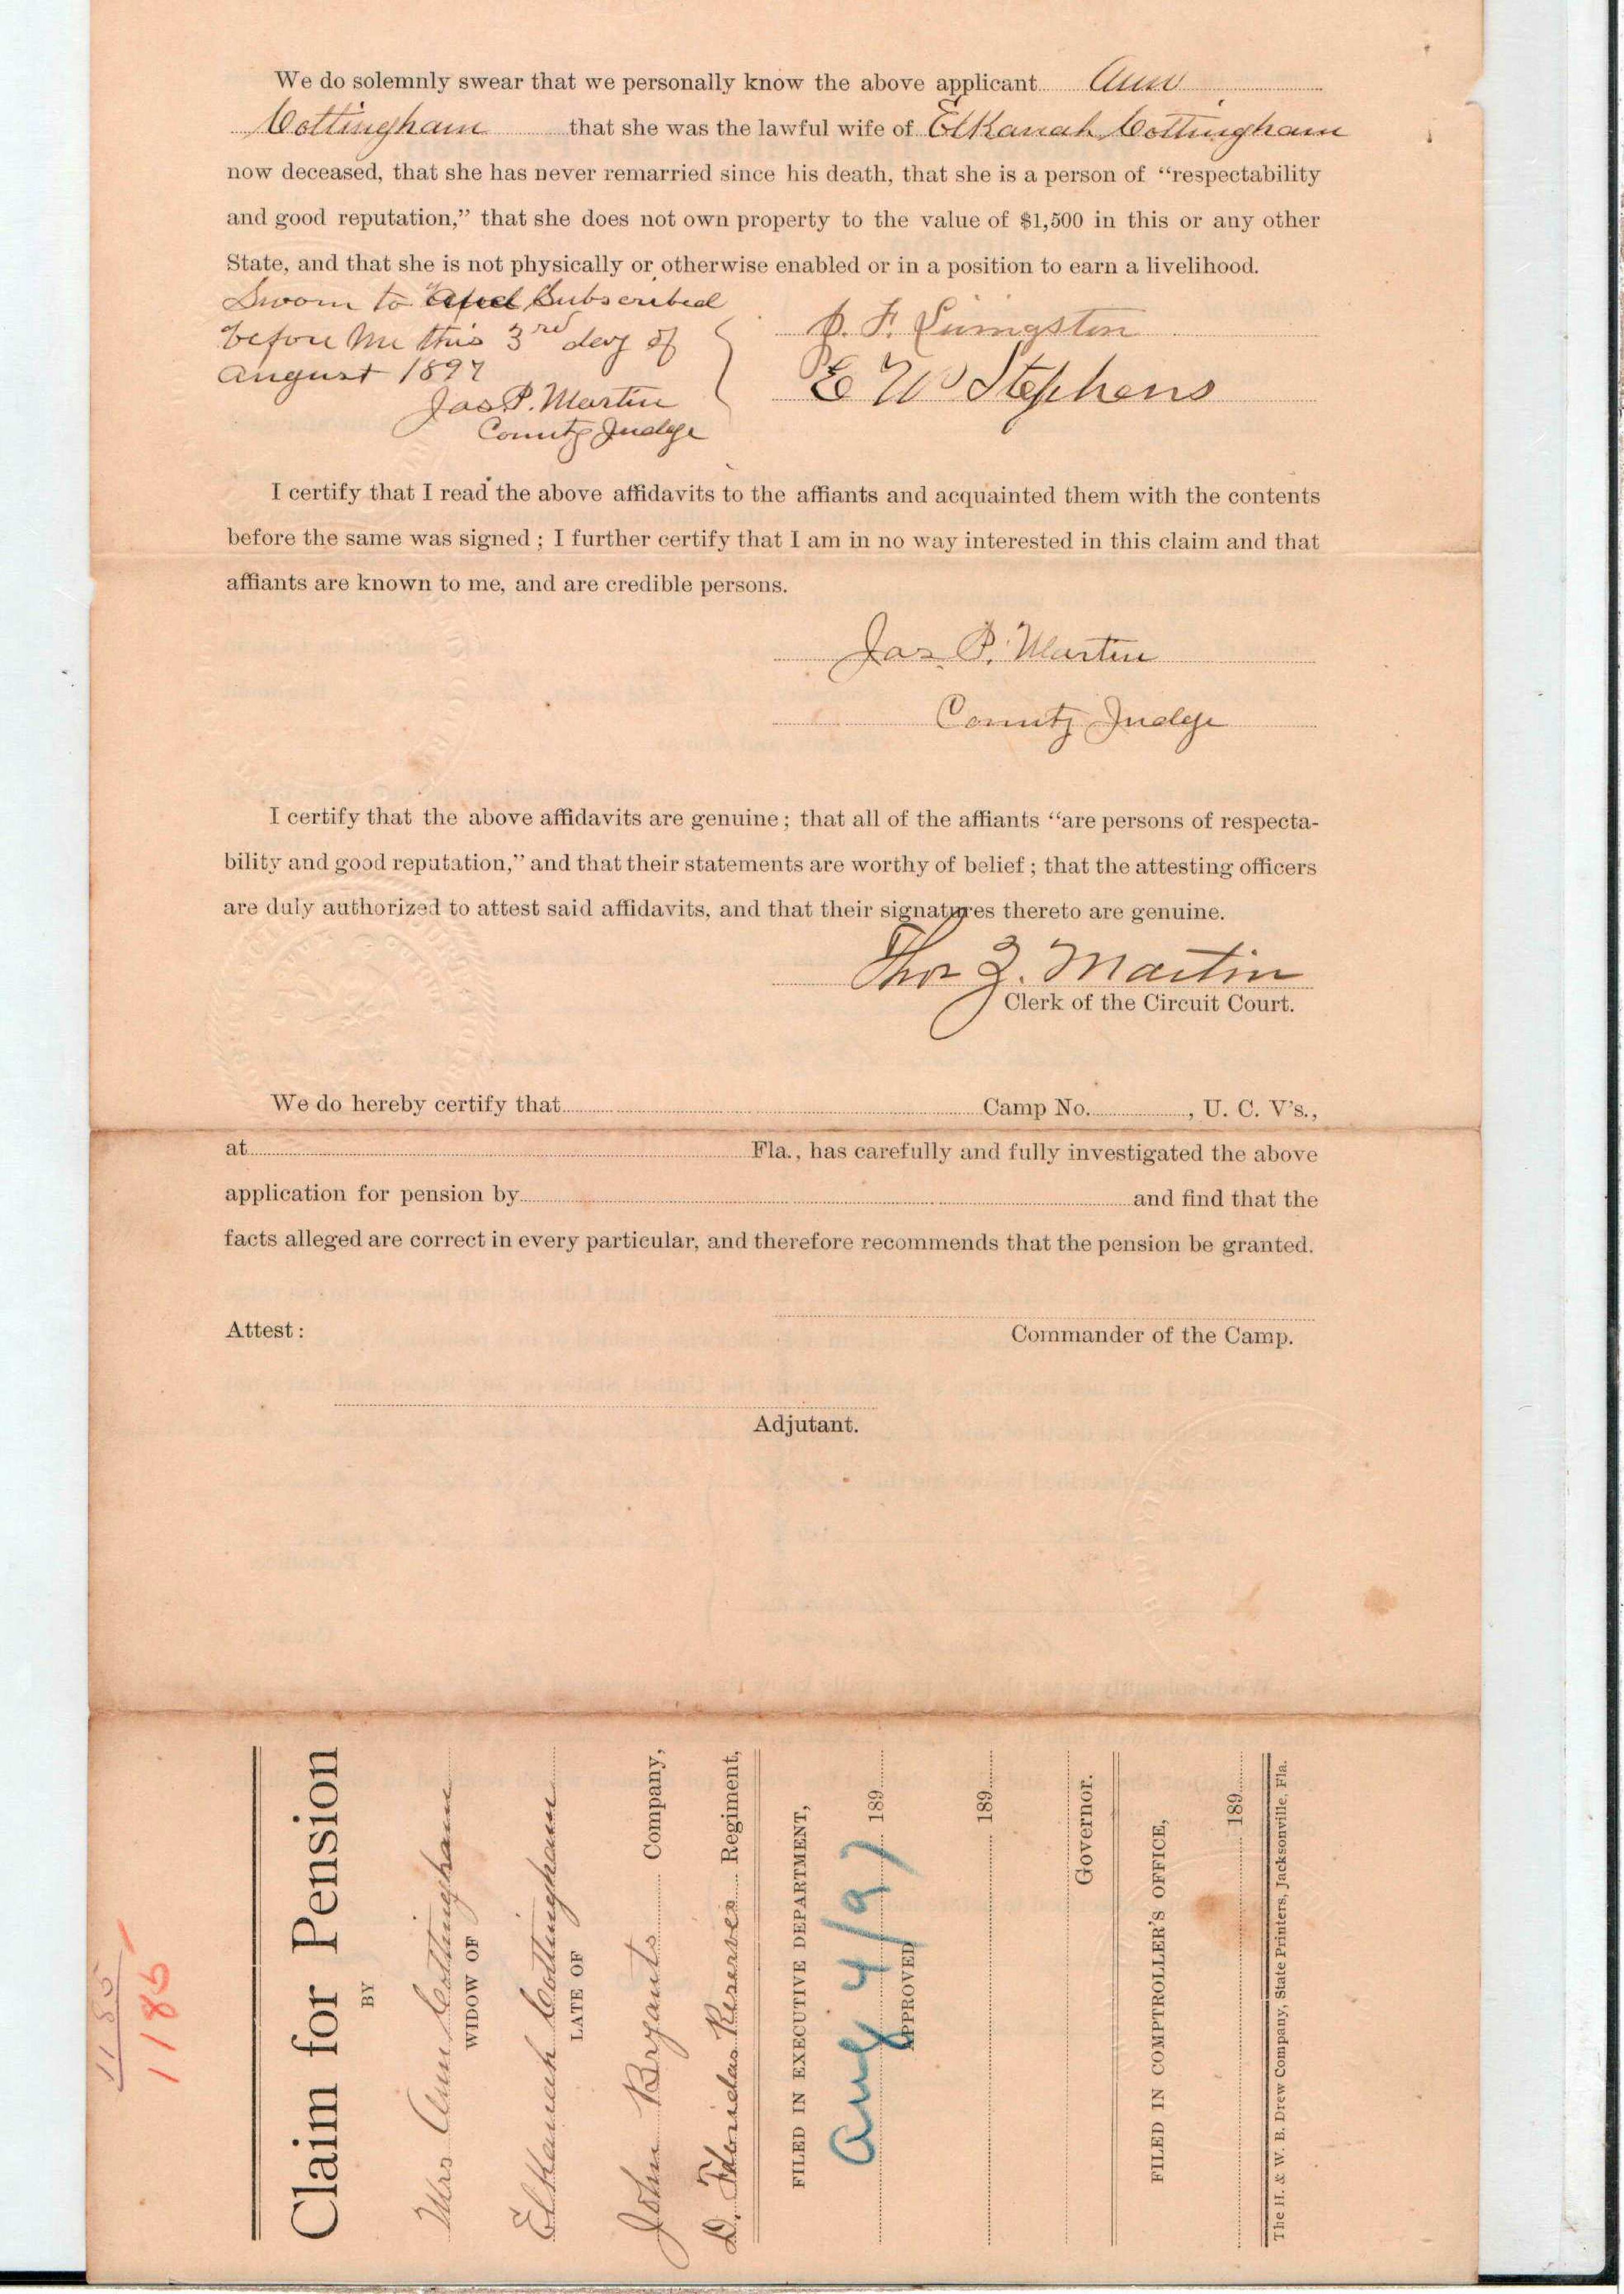 We do solemnly swear that we personally know the above applicant Ann
Cottingham that she was the lawful wife of Elkanah Cottingham
now deceased, that she has never remarried since his death, that she is a person of “respectability
and good reputation,” that she does not own property to the value of $1,500 in this or any other
State, and that she is not physically or otherwise enabled or in a position to earn a livelihood.
Sworn to and Subscribed
before me this 3rd day of
August 1897
Jas P. Martin
County Judge
F. Livingston
E W Stephens
I certify that I read the above affidavits to the affiants and acquainted them with the contents
before the same was signed; I further certify that I am in no way interested in this claim and that
affiants are known to me, and are credible persons.
Jas. P. Martin
County Judge
I certify that the above affidavits are genuine; that all of the affiants “are persons of respecta-
bility and good reputation,” and that their statements are worthy of belief; that the attesting officers
are duly authorized to attest said affidavits, and that their signatures thereto are genuine.
Martin
Clerk of the Circuit Court.
We do hereby certify that Camp No. , U. C. V's.,
at Fla., has carefully and fully investigated the above
application for pension by and find that the
facts alleged are correct in every particular, and therefore recommends that the pension be granted.
Attest:
Commander of the Camp.
Adjutant.
1185
1185
Claim for Pension
BY
Mrs Ann Cottingham
WIDOW OF
Elkanah Cottingham
LATE OF
John Bryants Company,
D. Floridas Reserves Regiment,
FILED IN EXECUTIVE DEPARTMENT,
Aug 4/97 189
APPROVED
189
Governor.
FILED IN COMPTROLLER'S OFFICE,
189
The H. & W. B. Drew Company, State Printers, Jacksonville, Fla.